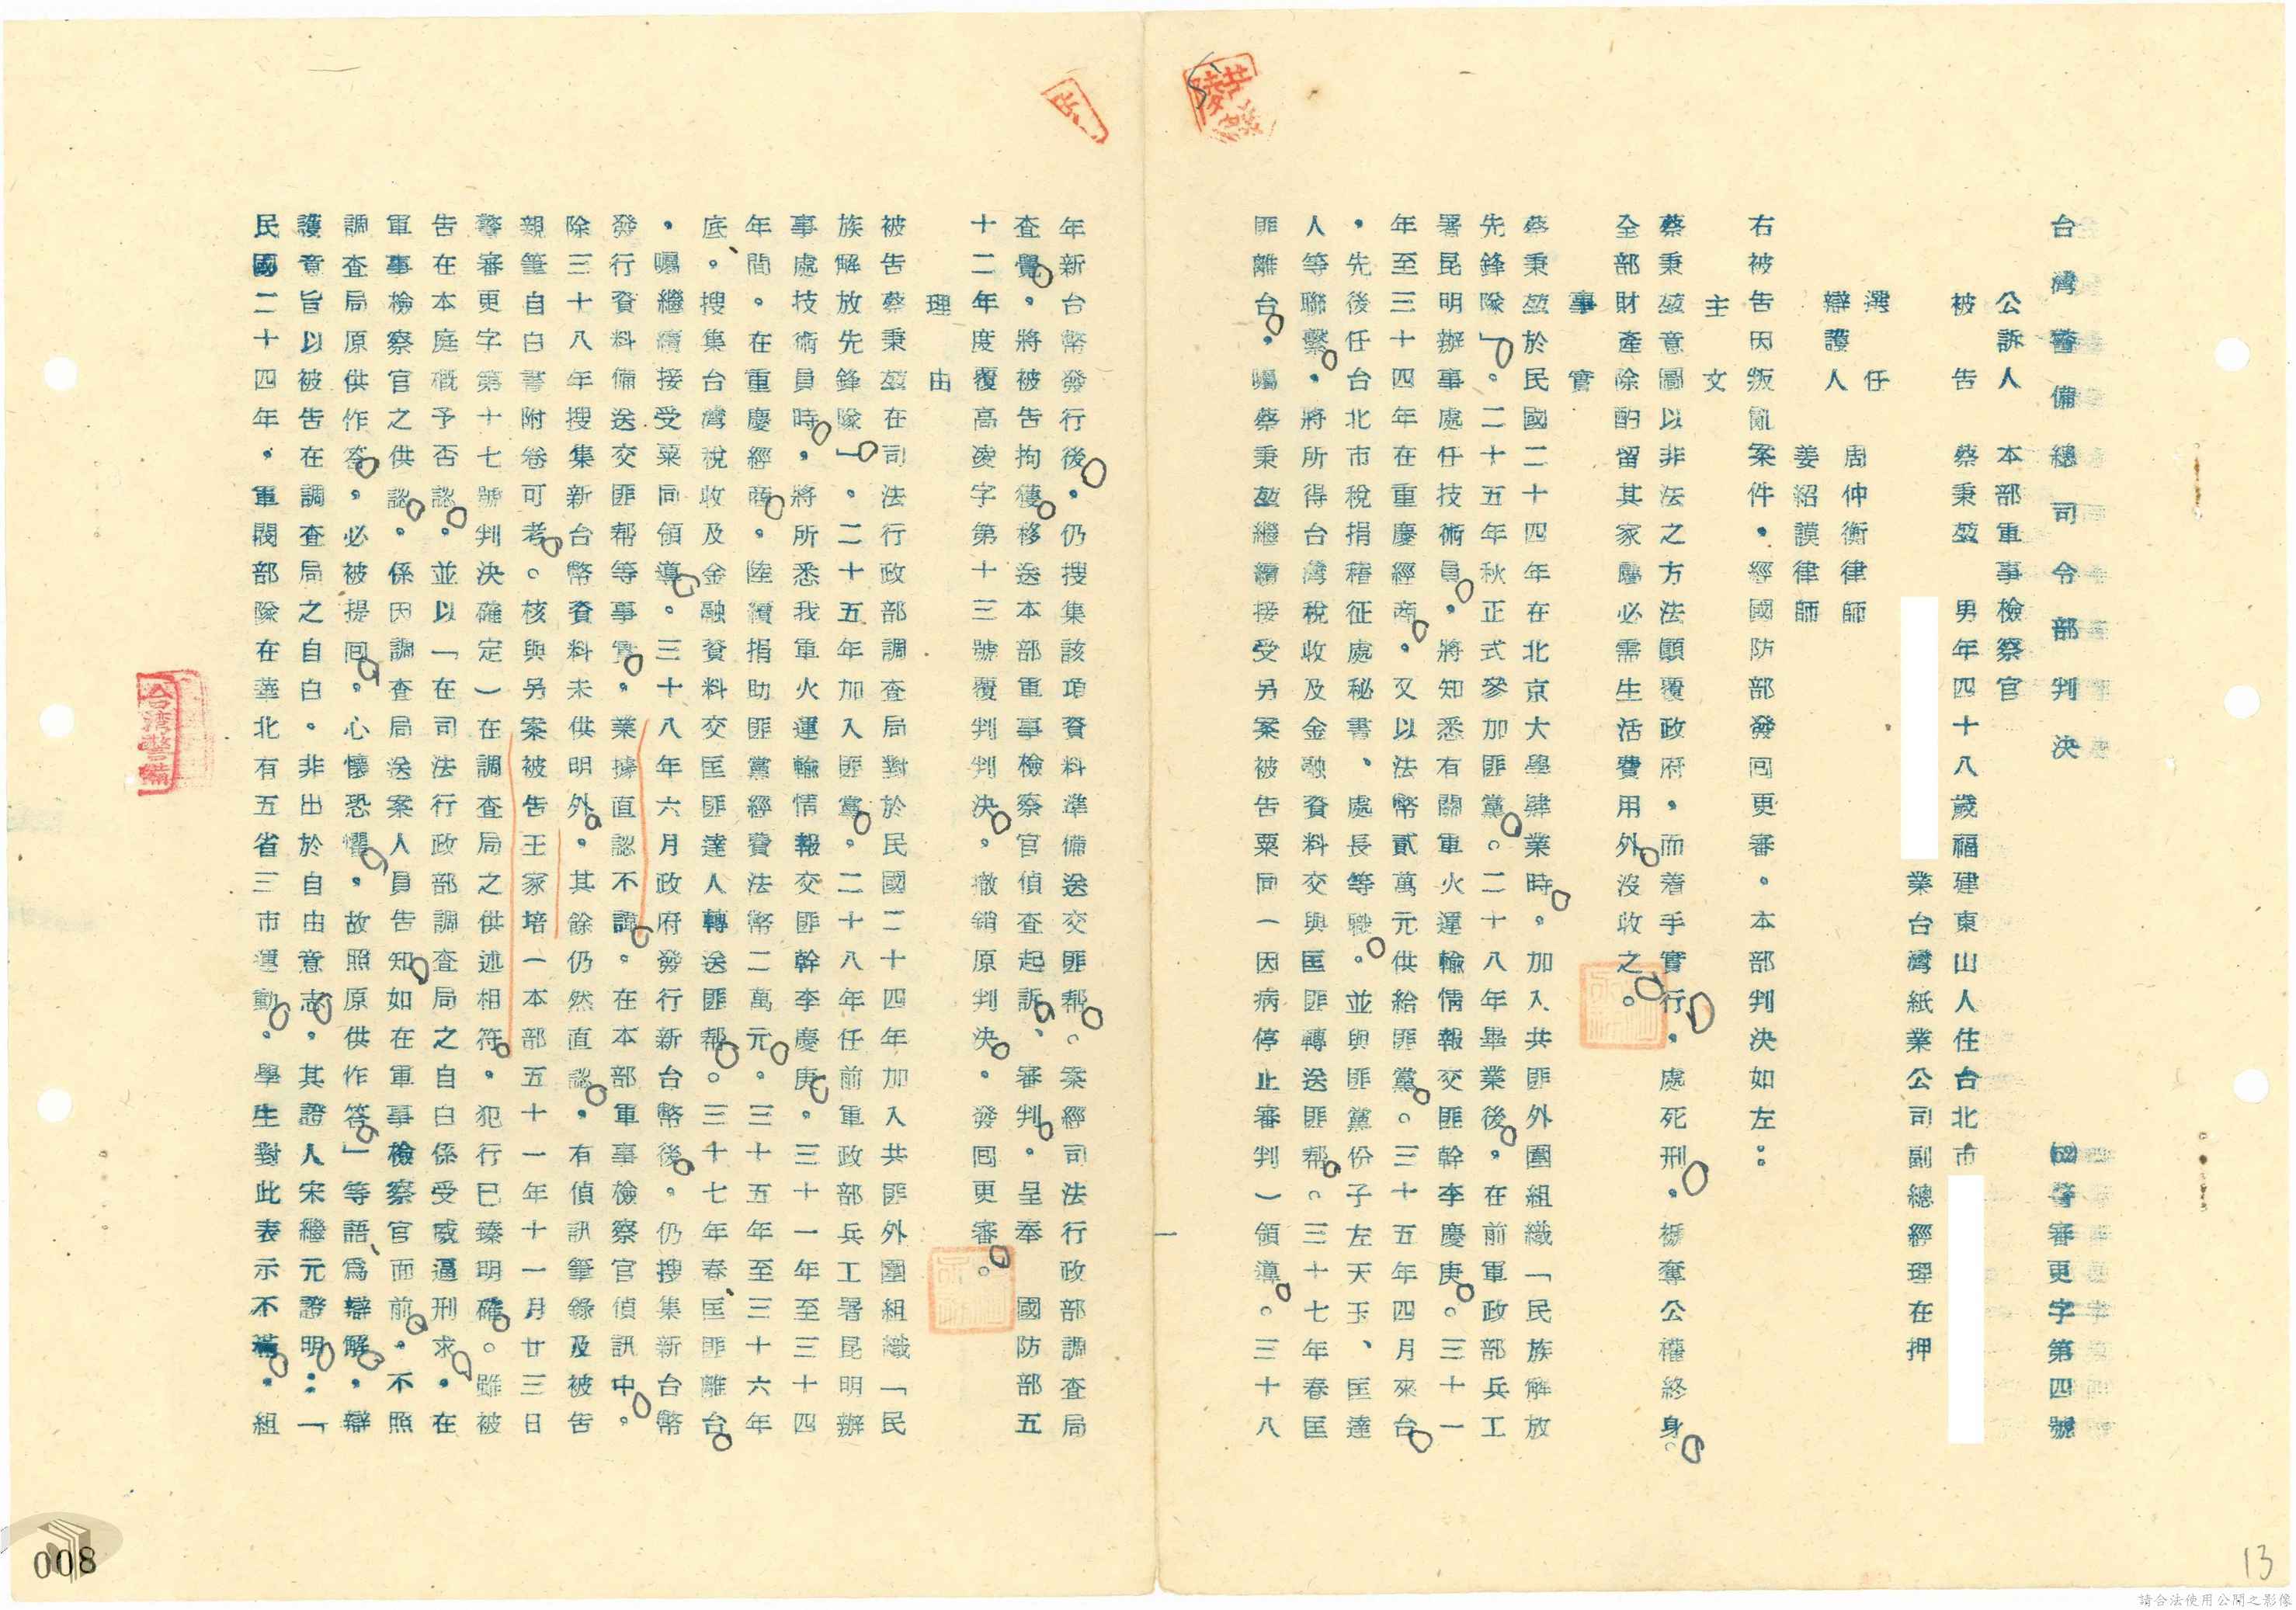 台灣警備總司令部判決
㊾等審更字第四號
公訴人 本部軍事檢察官
被告 蔡秉堃 男年四十八歲福建東山人住台北市
業台灣紙業公司副總經理在押
選任 周仲衡律師
辯護人 姜紹謨律師
右被告因叛亂案件，經國防部發回更審。本部判決如左：
主文
蔡秉堃意圖以非法之方法顛覆政府，而着手實行，處死刑，褫奪公權終身。
全部財產除酌留其家屬必需生活費用外沒收之。
事實
蔡秉堃於民國二十四年在北京大學肄業時。加入共匪外圍組織「民族解放
先鋒隊」。二十五年秋正式參加匪黨。二十八年畢業後，在前軍政部兵工
署昆明辦事處任技術員，將知悉有關軍火運輸情報交匪幹李慶庚。三十一
年至三十四年在重慶經商，又以法幣貳萬元供給匪黨。三十五年四月來台
，先後任台北市稅捐稽征處秘書、處長等職。並與匪黨份子左天玉、匡達
人等聯繫，將所得台灣稅收及金融資料交與匡匪轉送匪幫。三十七年春匡
匪離台，囑蔡秉堃繼續接受另案被告粟同一因病停止審判）領導。三十八
年新台幣發行後，仍搜集該項資料準備送交匪幫。案經司法行政部調查局
查覺，將被告拘獲移送本部軍事檢察官偵查起訴、審判，呈奉 國防部五
十二年度覆高浚字第十三號覆判判決，撤銷原判決，發回更審。
理由
被告蔡秉堃在司法行政部調查局對於民國二十四年加入共匪外圍組織「民
族解放先鋒隊」。二十五年加入匪黨。二十八年任前軍政部兵工署昆明辦
事處技術員時，將所悉我軍火運輸情報交匪幹李慶庚。三十一年至三十四
年間。在重慶經商。陸續捐助匪黨經費法幣二萬元。三十五年至三十六年
底。搜集台灣稅收及金融資料交匡匪達人轉送匪幫。三十七年春匡匪離台
，囑繼續接受粟同領導。三十八年六月政府發行新台幣後。仍搜集新台幣
發行資料備送交匪幫等事實，業據直認不諱。在本部軍事檢察官偵訊中。
除三十八年搜集新台幣資料未供明外。其餘仍然直認，有偵訊筆錄及被告
親筆自白書附卷可考。核與另案被告王家培一本部五十一年十一月廿三日
警審更字第十七號判決確定）在調查局之供述相符，犯行已臻明確。雖被
告在本庭概予否認，並以「在司法行政部調查局之自白係受威逼刑求，在
軍事檢察官之供認。係因調查局送案人員告知如在軍事檢察官面前，不照
調查局原供作答，必被提回，心懷恐懼，故照原供作答」等語為辯解，辯
護意旨以被告在調查局之自白。非出於自由意志，其證人宋繼元證明：「
民國二十四年，軍閥部隊在華北有五省三市運動。學生對此表示不滿，組
台灣警備
008
13
請合法使用公開之影像